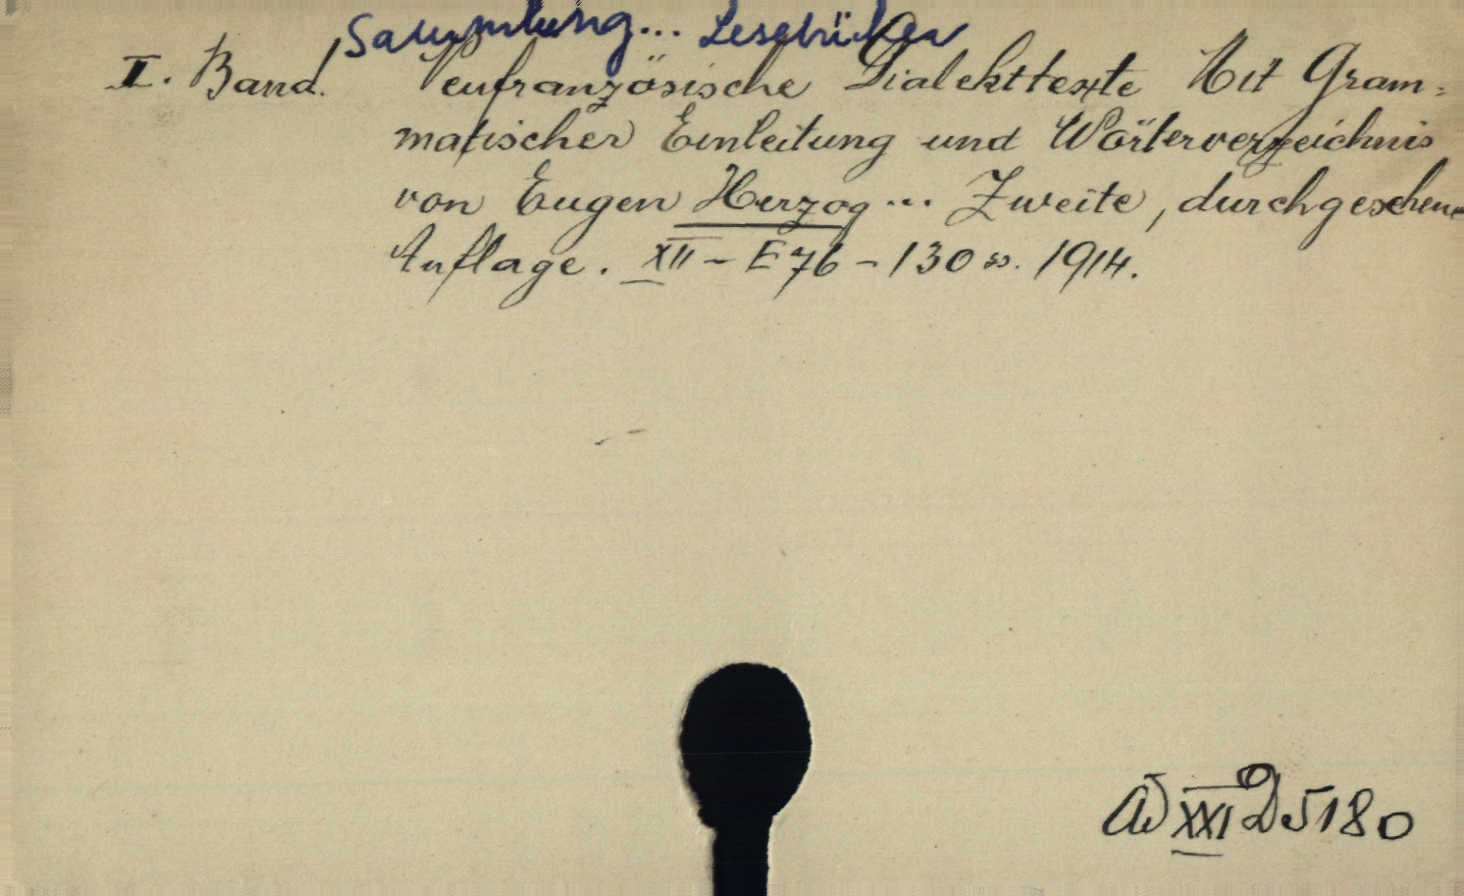 Sammlung... Lesebücher
I. Band. Neufranzösische Dialekttexte Mit Gram=
matischer Einleitung und Wörterverzeichnis
von Eugen Herzog... Zweite, durchgesehene
Auflage. XII - E 76 - 130 ss. 1914.
XXI D 5180